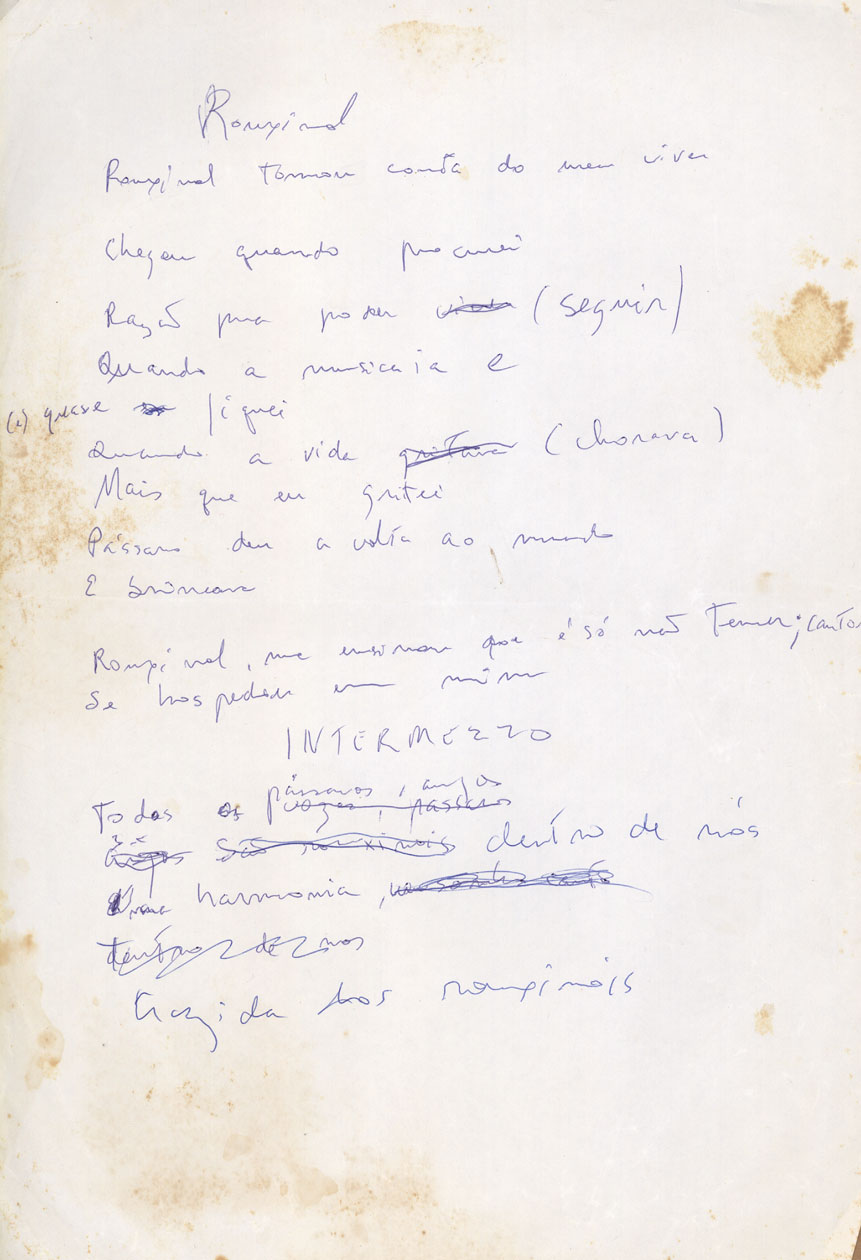 Rouxinol
Rouxinol tomou conta do meu viver
Chegou quando procurei
Razão pra poder (seguir)
Quando a música ia e
(e) quase fiquei
Quando a vida gritava (chorava)
Mais que eu gritei
Pássaro deu a volta ao mundo
E brincava
Rouxinol, me ensinou que é só não temer; cantou
Se hospedou em mim
INTERMEZZO
pássaros, anjos
Todos os vozes, pássaros
Anjos São rouxinóis dentro de nós
Uma harmonia,
dentro de nós
trazida dos rouxinóis